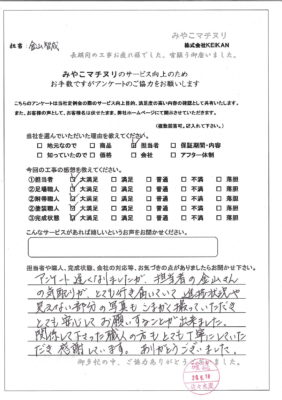 みやこマチヌリ
株式会社KEIKAN
担当者 金山智成
長期間の工事お疲れ様でした。皆様う御座いました。
みやこマチヌリのサービス向上のため
お手数ですがアンケートのご協力をお願いします
こちらのアンケートは当社定例会の際のサービス向上目的、満足度の高い内容の確認として共有いたします。
また、お客様の声として、お客様名は伏せたまま、弊社ホームページにて開示させていただきます。
(複数回答可。記入れて下さい。)
当社を選んでいただいた理由を教えてください。
□ 地元なので □ 商品 ☑ 担当者 □ 保証期間・内容
□ 知っていたので □ 価格 □ 会社 □ アフター体制
今回の工事の感想を教えてください。
①担当者 ☑ 大満足 □ 満足 □ 普通 □ 不満 □ 落胆
②足場職人 ☑ 大満足 □ 満足 □ 普通 □ 不満 □ 落胆
③耐得職人 ☑ 大満足 □ 満足 □ 普通 □ 不満 □ 落胆
④塗装職人 ☑ 大満足 □ 満足 □ 普通 □ 不満 □ 落胆
⑤完成状態 ☑ 大満足 □ 満足 □ 普通 □ 不満 □ 落胆
こんなサービスがあれば嬉しいというお声をお聞かせください。
担当者や職人、完成状態、会社の対応等、お気づきの点がありましたらお聞かせ下さい。
アンケート遅くなりましたが、担当者の金山さん
の気配りが、とても行き届いていて、進捗状況や
見えない部分の写真もこまめに撮っていただき
とても安心してお願いすることが出来ました。
関係して下さった職人の方もとても丁寧にしていた
だき感謝しています。ありがとうございました。
御多忙の中、ご協力ありがとう